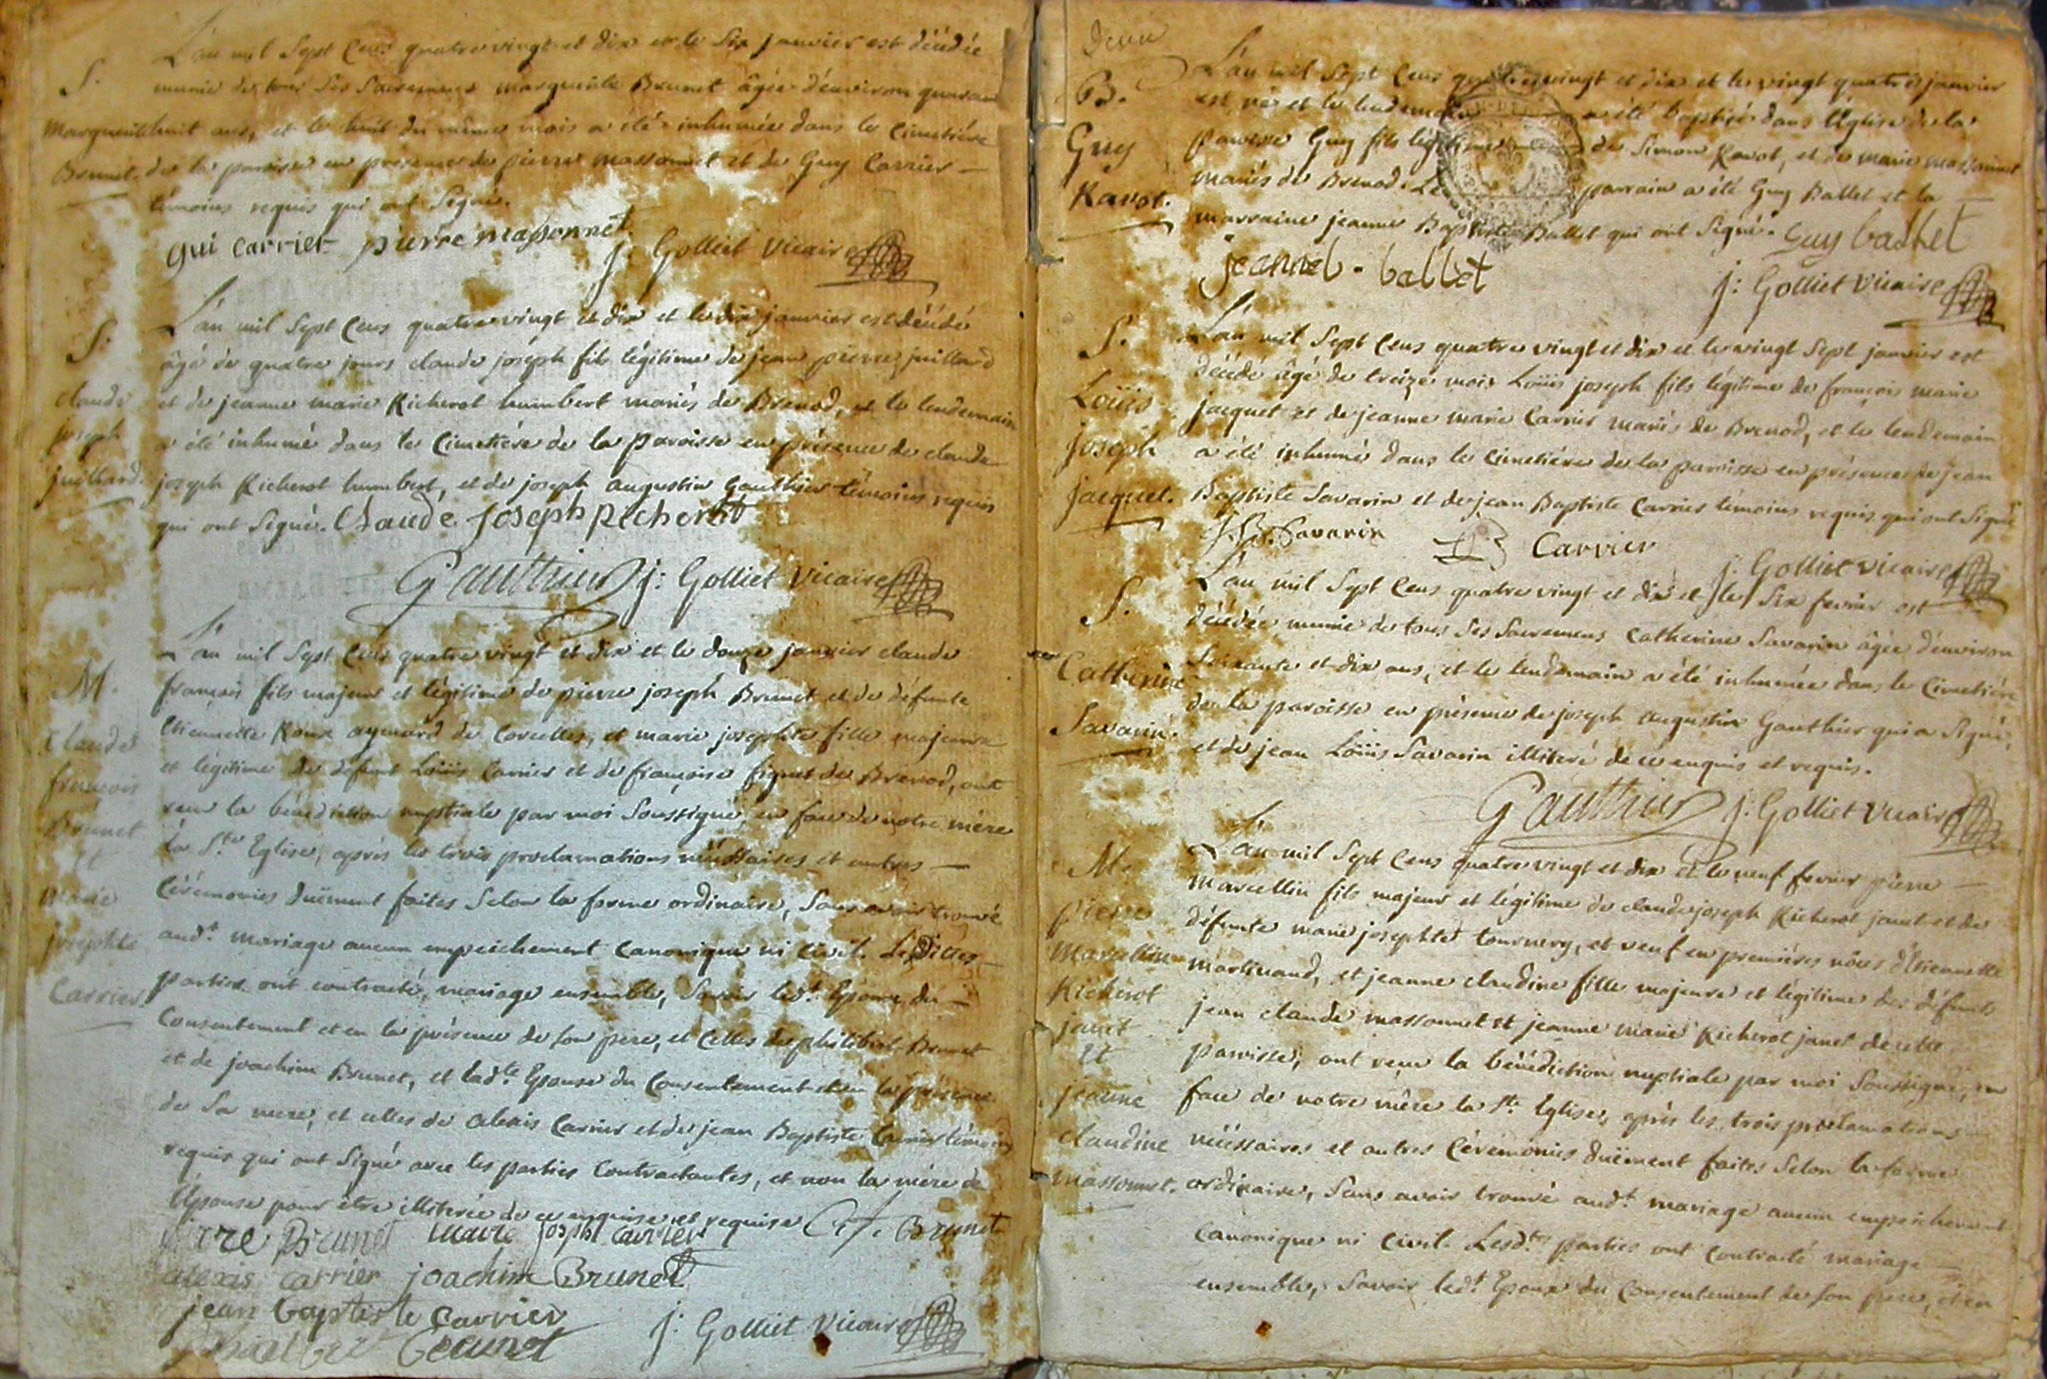 L'an mil Sept Cens quatre vingt et dix et le Six janvier est décédée
S.
munie de tous Ses Sacremens marguerite Brunet âgée d'environ quarante
Marguerite
huit ans, et le huit du même mois a été inhumée dans le Cimetière
Brunet.
de la paroisse en presence de pierre massonnet et de Guy Carrier
témoins requis qui ont Signé.
gui carrier pierre massonnet
j: Golliet Vicaire
L'an mil Sept Cens quatre vingt et dix et le dix janvier est décédé
S.
âgé de quatre jours claude joseph fils légitime de jean pierre juillard
claude
et de jeanne marie Richerot humbert mariés de Brenod, et le lendemain
joseph
a été inhumé dans le Cimetière de la paroisse en présence de claude
juillard.
joseph Richerot humbert, et de joseph augustin Gauthier témoins requis
qui ont Signé. Claude joseph richerot
Gauthier j: Golliet Vicaire
L'an mil Sept Cens quatre vingt et dix et le douze janvier claude
M.
françois fils majeur et légitime de pierre joseph Brunet et de défunte
claude
Etiennette Roux aymard de Corcelles, et marie josephte fille majeure
françois
et légitime de défunt Loüis Carrier et de françoise figuet de Brenod, ont
Brunet
reçu la bénédiction nuptiale par moi Soussigné, en face de notre mère
Et
la Ste Eglise, après les trois proclamations nécessaires et autres
marie
Cérémonies duëment faites Selon la forme ordinaire, Sans avoir trouvé
josephte
audt mariage aucun empeichement Canonique ni Civil. Lesdittes
Carrier
parties ont contracté, mariage ensemble, Savoir ledt Epoux du
Consentement et en la présence de Son père, et Celles de philibert Brunet
et de joachim Brunet, et ladte Epouse du Consentement et en la présence
de Sa mere, et celles de alexis Carrier et de jean Baptiste Carrier témoins
requis qui ont Signé avec les parties Contractantes, et non la mère de
l'Epouse pour être illiterée de ce enquise et requise C: f: Brunet
pierre Brunet marie joseph carrier
alexis carrier joachim Brunet
jean baptiste carrier
philbert brunet
j: Golliet Vicaire
Deux
L'an mil Sept Cens quatre vingt et dix et le vingt quatre janvier
B.
est né et le lendemain a été baptisé dans l'Eglise de la
Guy
paroisse Guy fils légitime de Simon Ravot, et de marie massonnet
Ravot.
mariés de Brenod. Le parrain a été Guy Ballet et la
marraine jeanne Baptiste Ballet qui ont Signé. Guy ballet
jeanneb. ballet
j: Golliet Vicaire
L'an mil Sept Cens quatre vingt et dix et le vingt Sept janvier est
S.
décédé âgé de treize mois Loüis joseph fils légitime de françois marie
Loüis
jacquet et de jeanne marie Carrier mariés de Brenod, et le lendemain
joseph
a été inhumé dans le Cimetière de la paroisse en présence de jean
jacquet.
Baptiste Savarin et de jean Baptiste Carrier témoins requis qui ont Signé
J. B. Savarin JB Carrier
j: Golliet Vicaire
L'an mil Sept Cens quatre vingt et dix et le Six fevrier est
S.
décédée munie de tous Ses Sacremens Catherine Savarin âgée d'environ
Catherine
Soixante et dix ans, et le lendemain a été inhumée dans le Cimetière
Savarin.
de la paroisse en présence de joseph augustin Gauthier qui a Signé,
et de jean Loüis Savarin illiteré de ce enquis et requis.
Gauthier j: Golliet Vicaire
L'an mil Sept Cens quatre vingt et dix et le neuf fevrier pierre
M.
Marcellin fils majeur et légitime de claude joseph Richerot janet et de
pierre
défunte marie josephte tournery, et veuf en premières nôces d'Etiennette
Marcellin
martinand, et jeanne claudine fille majeure et légitime des défunts
Richerot
jean claude massonnet et jeanne marie Richerot janet de cette
janet
paroisse, ont reçu la bénédiction nuptiale par moi Soussigné, en
Et
face de notre mère la Ste Eglise, après les trois proclamations
jeanne
nécessaires et autres Cérémonies duëment faites Selon la forme
claudine
ordinaire, Sans avoir trouvé audt mariage aucun empeichement
massonnet.
Canonique ni Civil. Lesdtes parties ont Contracté mariage
ensemble, Savoir ledt Epoux du Consentement de Son père, et en